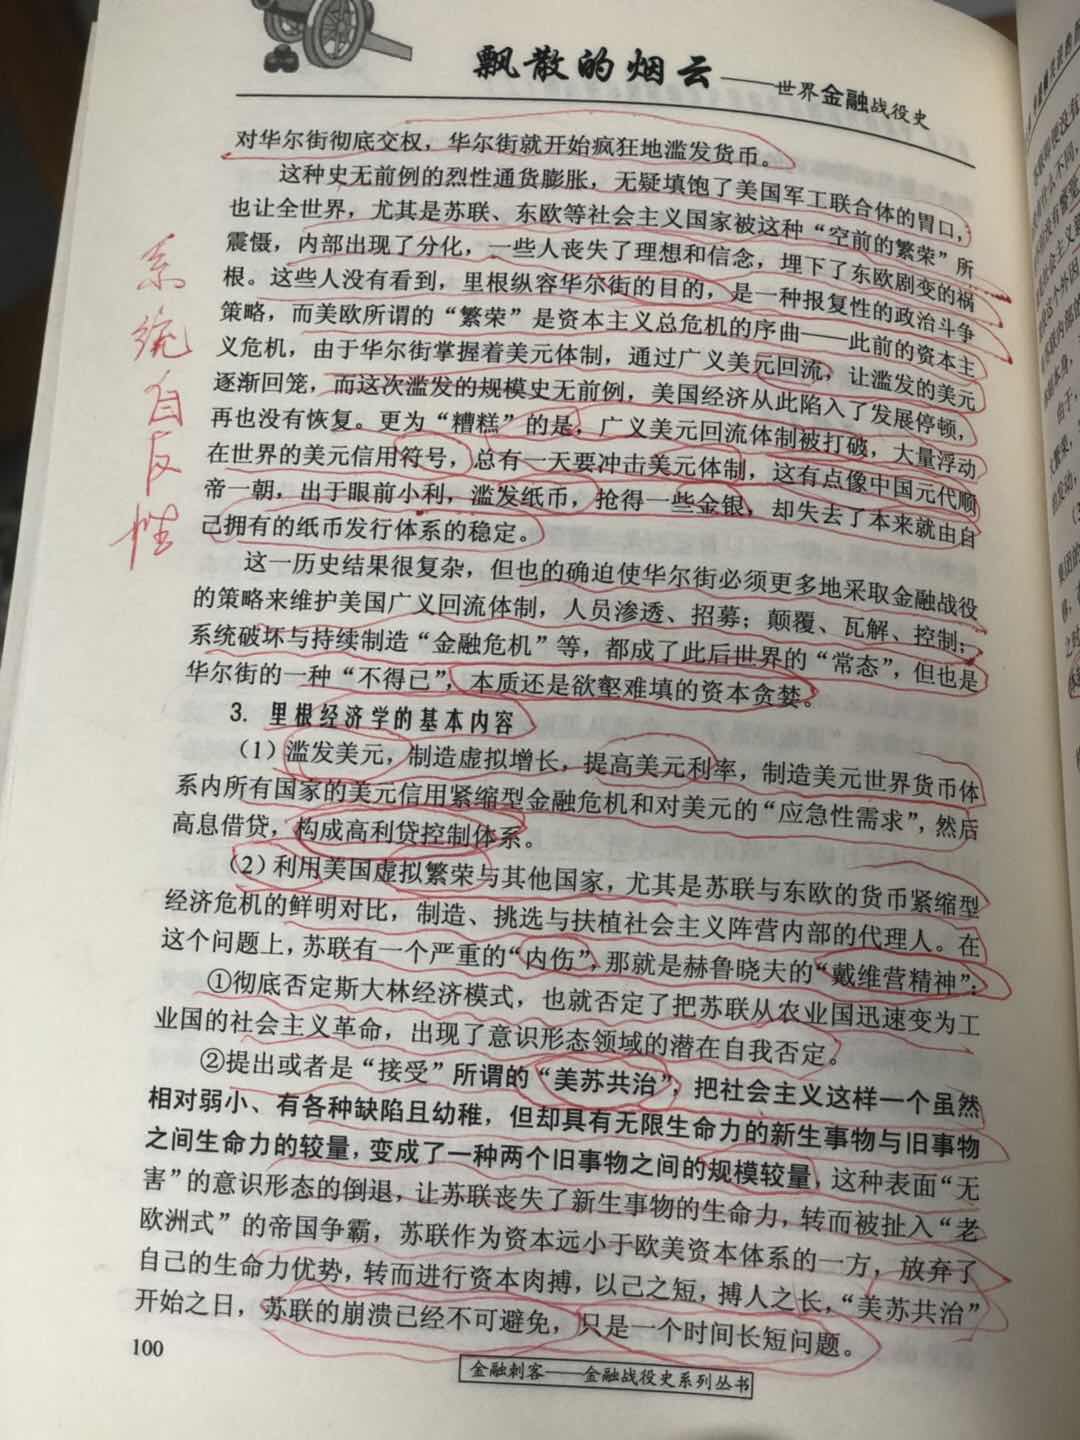 飘散的烟云——世界金融战役史
对华尔街彻底交权，华尔街就开始疯狂地滥发货币。
这种史无前例的烈性通货膨胀，无疑填饱了美国军工联合体的胃口，
也让全世界，尤其是苏联、东欧等社会主义国家被这种“空前的繁荣”所
震慑，内部出现了分化，一些人丧失了理想和信念，埋下了东欧剧变的祸
根。这些人没有看到，里根纵容华尔街的目的，是一种报复性的政治斗争
策略，而美欧所谓的“繁荣”是资本主义总危机的序曲——此前的资本主
义危机，由于华尔街掌握着美元体制，通过广义美元回流，让滥发的美元
逐渐回笼，而这次滥发的规模史无前例，美国经济从此陷入了发展停顿，
再也没有恢复。更为“糟糕”的是，广义美元回流体制被打破，大量浮动
在世界的美元信用符号，总有一天要冲击美元体制，这有点像中国元代顺
帝一朝，出于眼前小利，滥发纸币，抢得一些金银，却失去了本来就由自
己拥有的纸币发行体系的稳定。
这一历史结果很复杂，但也的确迫使华尔街必须更多地采取金融战役
的策略来维护美国广义回流体制，人员渗透、招募；颠覆、瓦解、控制；
系统破坏与持续制造“金融危机”等，都成了此后世界的“常态”，但也是
华尔街的一种“不得已”，本质还是欲壑难填的资本贪婪。
3. 里根经济学的基本内容
（1）滥发美元，制造虚拟增长，提高美元利率，制造美元世界货币体
系内所有国家的美元信用紧缩型金融危机和对美元的“应急性需求”，然后
高息借贷，构成高利贷控制体系。
（2）利用美国虚拟繁荣与其他国家，尤其是苏联与东欧的货币紧缩型
经济危机的鲜明对比，制造、挑选与扶植社会主义阵营内部的代理人。在
这个问题上，苏联有一个严重的“内伤”，那就是赫鲁晓夫的“戴维营精神”：
①彻底否定斯大林经济模式，也就否定了把苏联从农业国迅速变为工
业国的社会主义革命，出现了意识形态领域的潜在自我否定。
②提出或者是“接受”所谓的“美苏共治”，把社会主义这样一个虽然
相对弱小、有各种缺陷且幼稚，但却具有无限生命力的新生事物与旧事物
之间生命力的较量，变成了一种两个旧事物之间的规模较量，这种表面“无
害”的意识形态的倒退，让苏联丧失了新生事物的生命力，转而被扯入“老
欧洲式”的帝国争霸，苏联作为资本远小于欧美资本体系的一方，放弃了
自己的生命力优势，转而进行资本肉搏，以己之短，搏人之长，“美苏共治”
开始之日，苏联的崩溃已经不可避免，只是一个时间长短问题。
100
金融刺客——金融战役史系列丛书
系
统
自
反
性